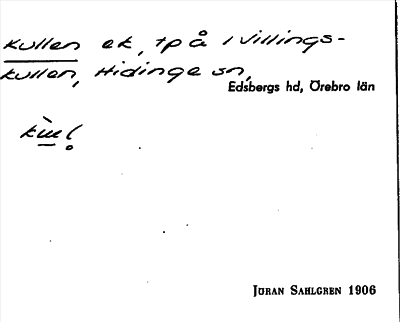 Kullen ek, tp å Villings-
kullen, Hidinge sn,
Edsbergs hd, Örebro län
JÖRAN SAHLGREN 1906